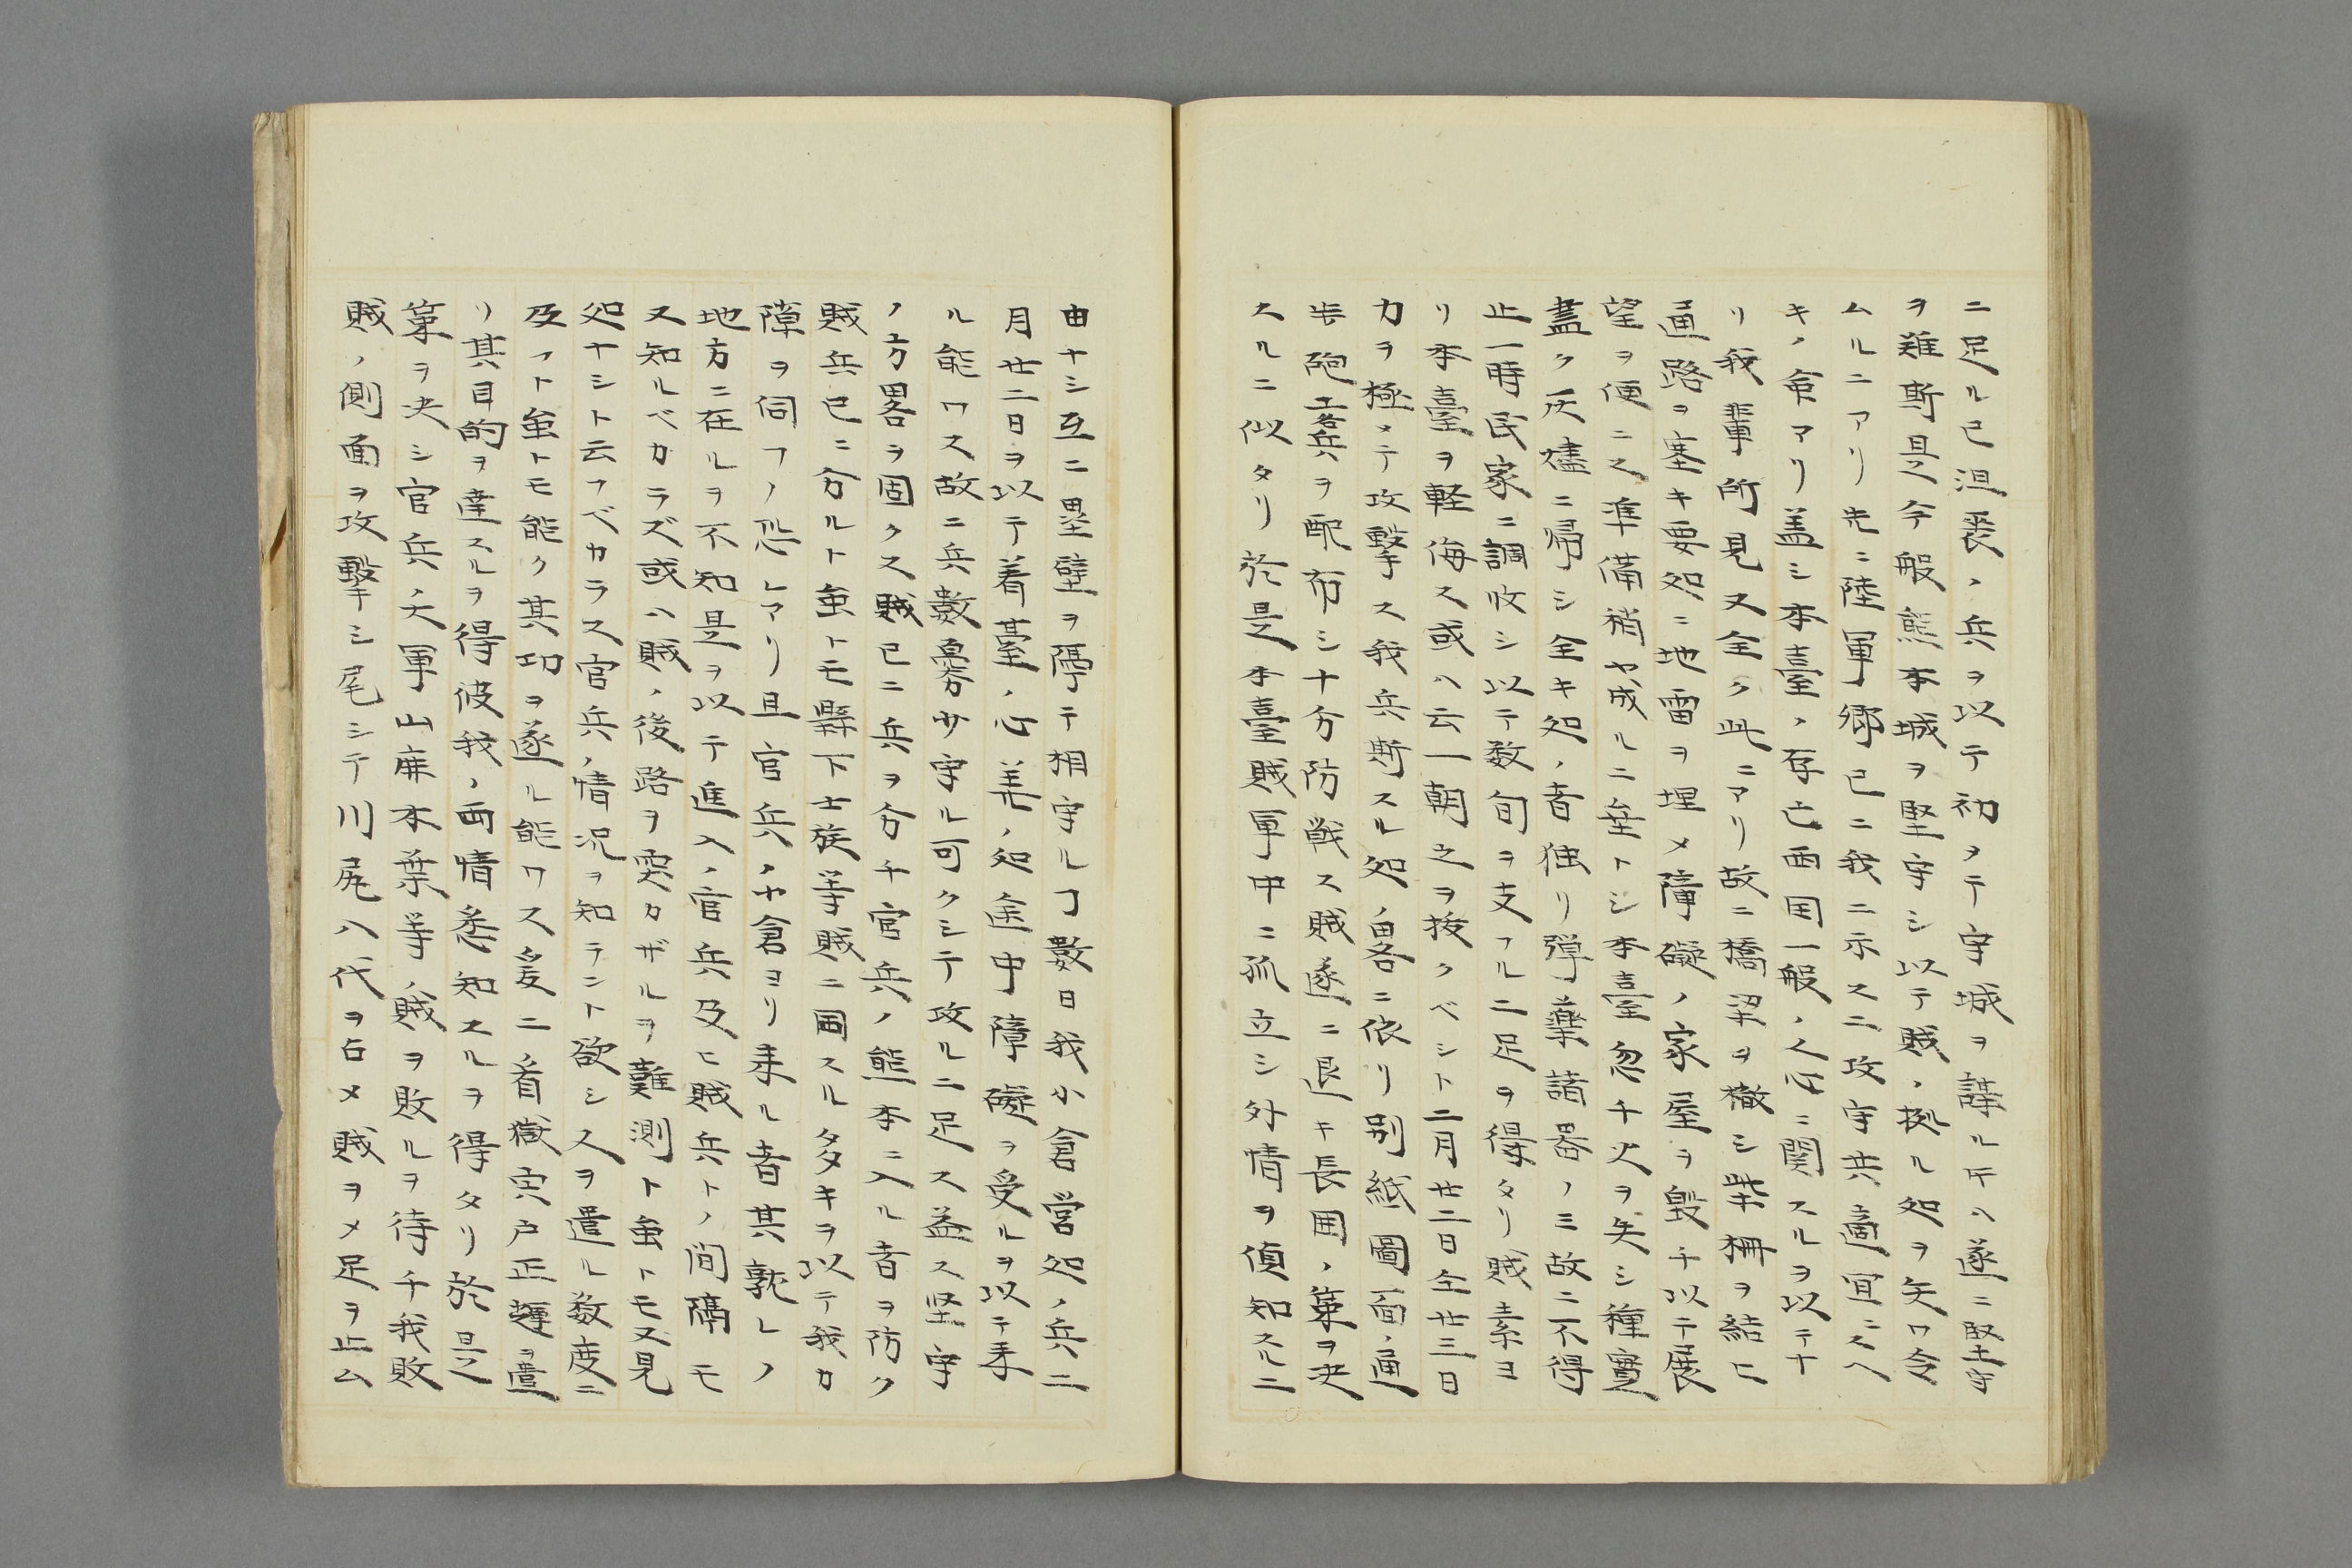 ニ足ル已沮喪ノ兵ヲ以テ初メテ守城ヲ講ル𪜈ハ遂ニ堅守
ヲ難断是今般熊本城ヲ堅守シ以テ賊ノ拠ル処ヲ失ワ令
ムルニアリ先ニ陸軍郷已ニ我ニ示スニ攻守共適宜ニスヘ
キノ命アリ盖シ本臺ノ存亡西国一般ノ人心ニ関スルヲ以テナ
リ我輩所見又全ク此ニアリ故ニ橋梁ヲ徹シ柴柵ヲ結ヒ
通路ヲ塞キ要処ニ地雷ヲ埋メ障礙ノ家屋ヲ毀チ以テ展
望ヲ便ニス準備稍ヤ成ルニ垂トシ本臺忽チ火ヲ失シ種實
盡ク灰燼ニ帰シ全キ処ノ者独リ弾薬諸器ノミ故ニ不得
止一時民家ニ調收シ以テ数旬ヲ支フルニ足ヲ得タリ賊素ヨ
リ本臺ヲ軽侮ス或ハ云一朝之ヲ抜クベシト二月廿二日仝廿三日
力ヲ極メテ攻撃ス我兵断スル処ノ畧ニ依リ別紙圖面ノ通
歩砲工兵ヲ配布シ十分防戦ス賊遂ニ退キ長囲ノ策ヲ决
スルニ似タリ於是本臺賊軍中ニ孤立シ外情ヲ偵知スルニ
由ナシ互ニ塁壁ヲ隔テ相守ルヿ數日我小倉営処ノ兵二
月廿二日ヲ以テ着臺ノ心差ノ処途中障礙ヲ受ルヲ以テ来
ル能ワス故ニ兵數寡少守ル可クシテ攻ルニ足ス益ス堅守
ノ方畧ヲ固クス賊已ニ兵ヲ分チ官兵ノ熊本ニ入ル者ヲ防ク
賊兵已ニ分ルト虽トモ縣下士族等賊ニ囲スル多キヲ以テ我カ
障ヲ伺フノ恐レアリ且官兵ノヤ倉ヨリ来ル者其孰レノ
地方ニ在ルヲ不知是ヲ以テ進入ノ官兵及ヒ賊兵トノ間隔モ
又知ルベカラズ或ハ賊ノ後路ヲ突カザルヲ難測ト虽トモ又見
処ナシト云フベカラス官兵ノ情况ヲ知ラント欲シ人ヲ遣ル数度ニ
及フト虽トモ能ク其功ヲ遂ル能ワス爰ニ看獄宍戸正輝ヲ遣
リ其目的ヲ達スルヲ得彼我ノ両情悉知スルヲ得タリ於是
策ヲ决シ官兵ノ大軍山鹿木葉等ノ賊ヲ敗ルヲ待チ我敗
賊ノ側面ヲ攻撃シ尾シテ川尻八代ヲ占メ賊ヲメ足ヲ止ム